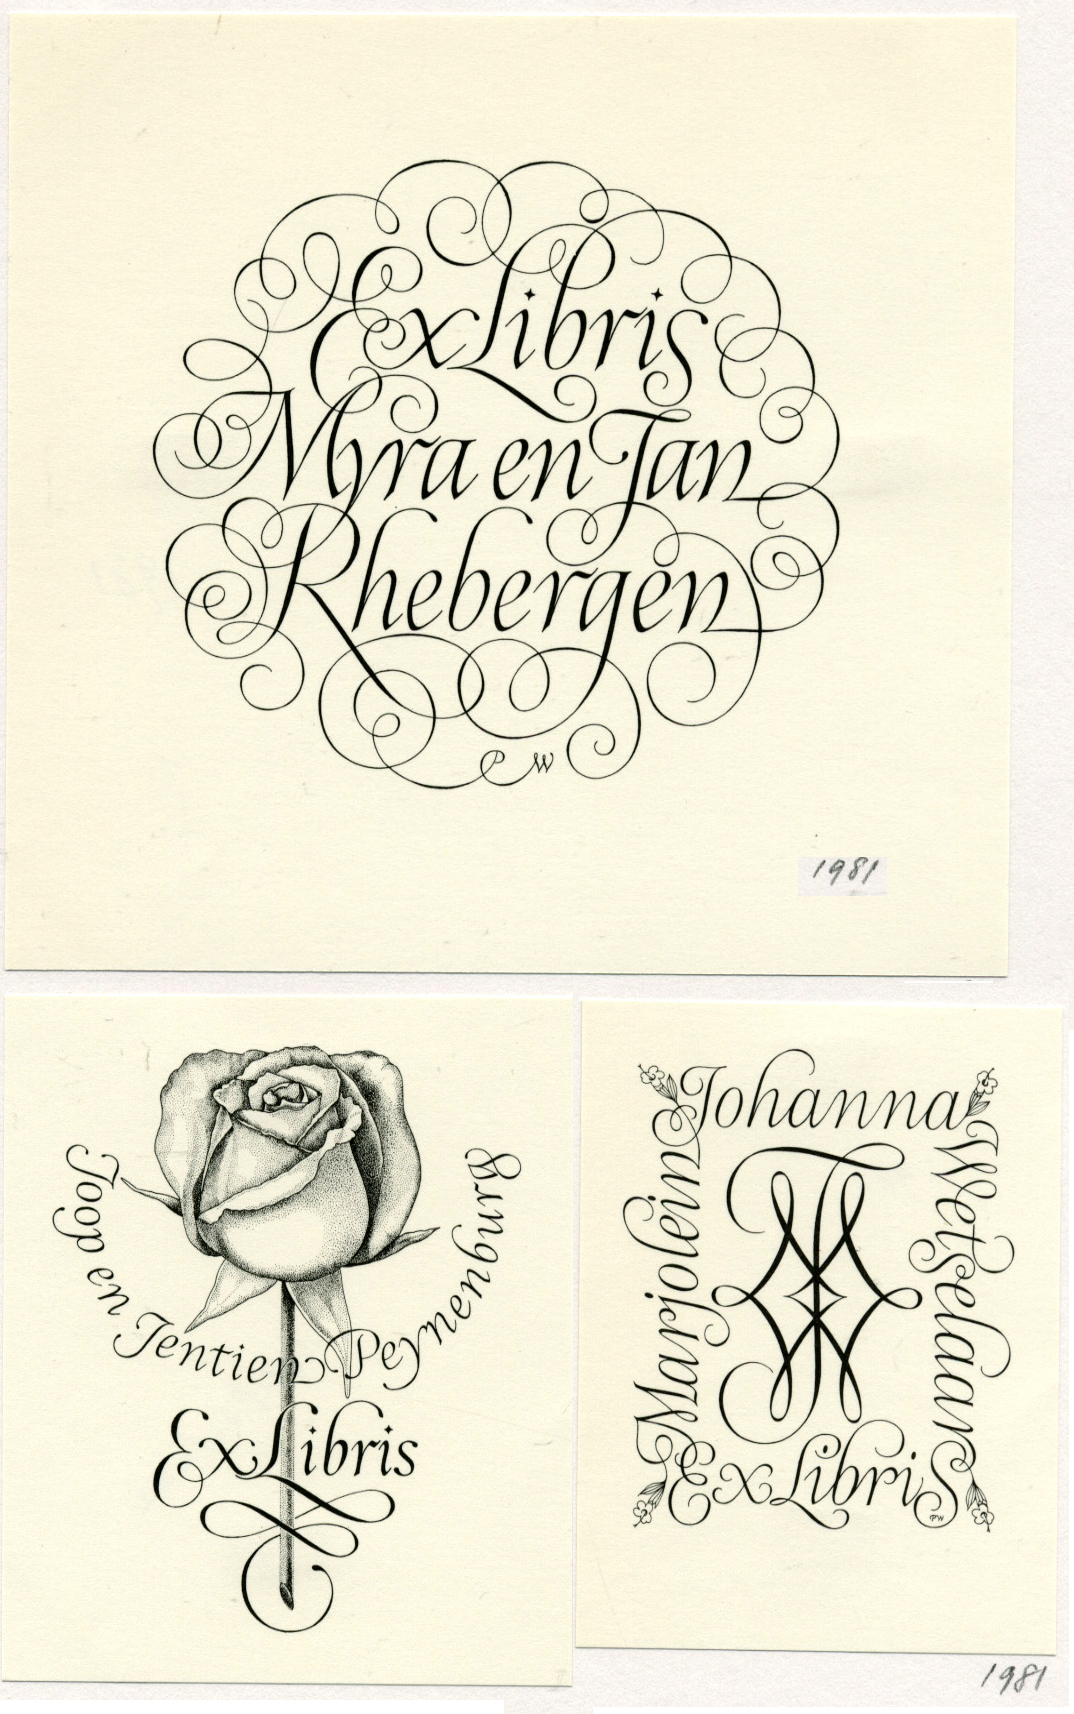 Ex Libris
Myra en Jan
Rhebergen
P W
1981
Joop en Jentien Peynenburg
Ex Libris
Marjolein
Johanna
Wetselaar
Ex Libris
PW
1981